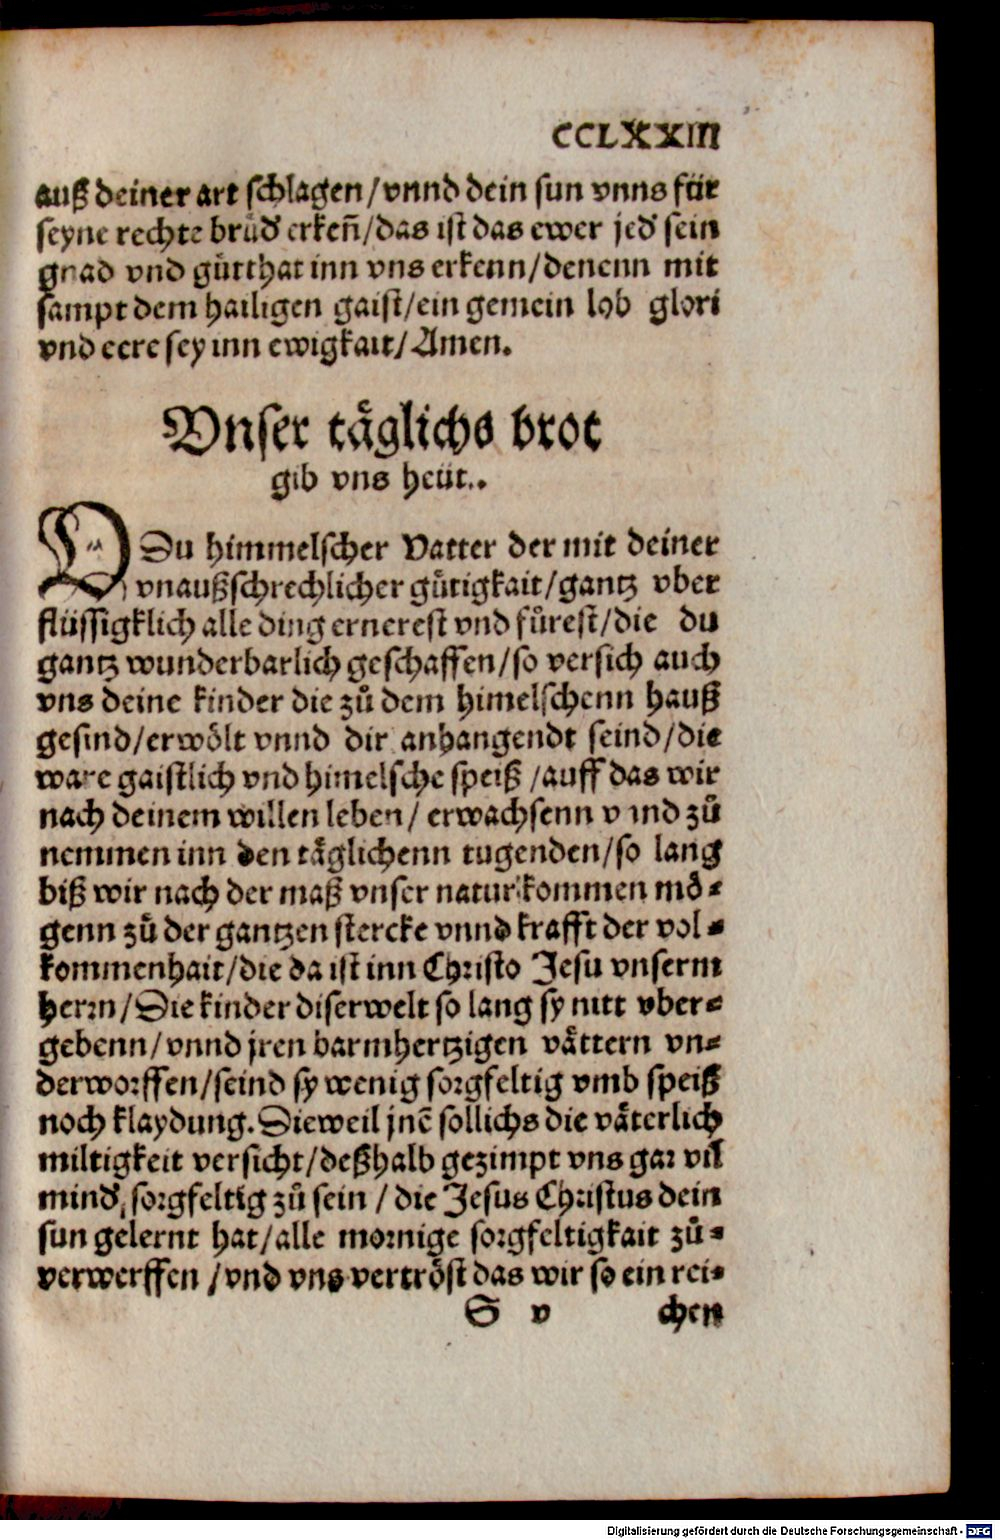 CCLXXIII
auß deiner art schlagen/vnnd dein sun vnns für
seyne rechte brüd' erkeñ/das ist das ewer jed' sein
gnad vnd gůtthat inn vns erkenn/denenn mit
sampt dem hailigen gaist/ein gemein lob glori
vnd eere sey inn ewigkait/Amen.
Vnser tåglichs brot
gib vns heüt..
O Du himmelscher Vatter der mit deiner
vnaußschrechlicher gůtigkait/gantz vber
flüssigklich alle ding ernerest vnd fůrest/die du
gantz wunderbarlich geschaffen/so versich auch
vns deine kinder die zů dem himelschenn hauß
gesind/erwôlt vnnd dir anhangendt seind/die
ware gaistlich vnd himelsche speiß /auff das wir
nach deinem willen leben/ erwachsenn vnnd zů
nemmen inn den tåglichenn tugenden/so lang
biß wir nach der maß vnser natur kommen mô⸗
genn zů der gantzen stercke vnnd krafft der vol⸗
kommenhait/die da ist inn Christo Jesu vnserm
herrn/Die kinder diser welt so lang sy nitt vber⸗
gebenn/vnnd jren barmhertzigen våttern vn⸗
derworffen/seind sy wenig sorgfeltig vmb speiß
noch klaydung. Dieweil jnē sollichs die våterlich
miltigkeit versicht/deßhalb gezimpt vns gar vil
mind' sorgfeltig zů sein / die Jesus Christus dein
sun gelernt hat/alle mornige sorgfeltigkait zů⸗
verwerffen /vnd vns vertrôst das wir so ein rei⸗
S v chen
Digitalisierung gefördert durch die Deutsche Forschungsgemeinschaft - DFG